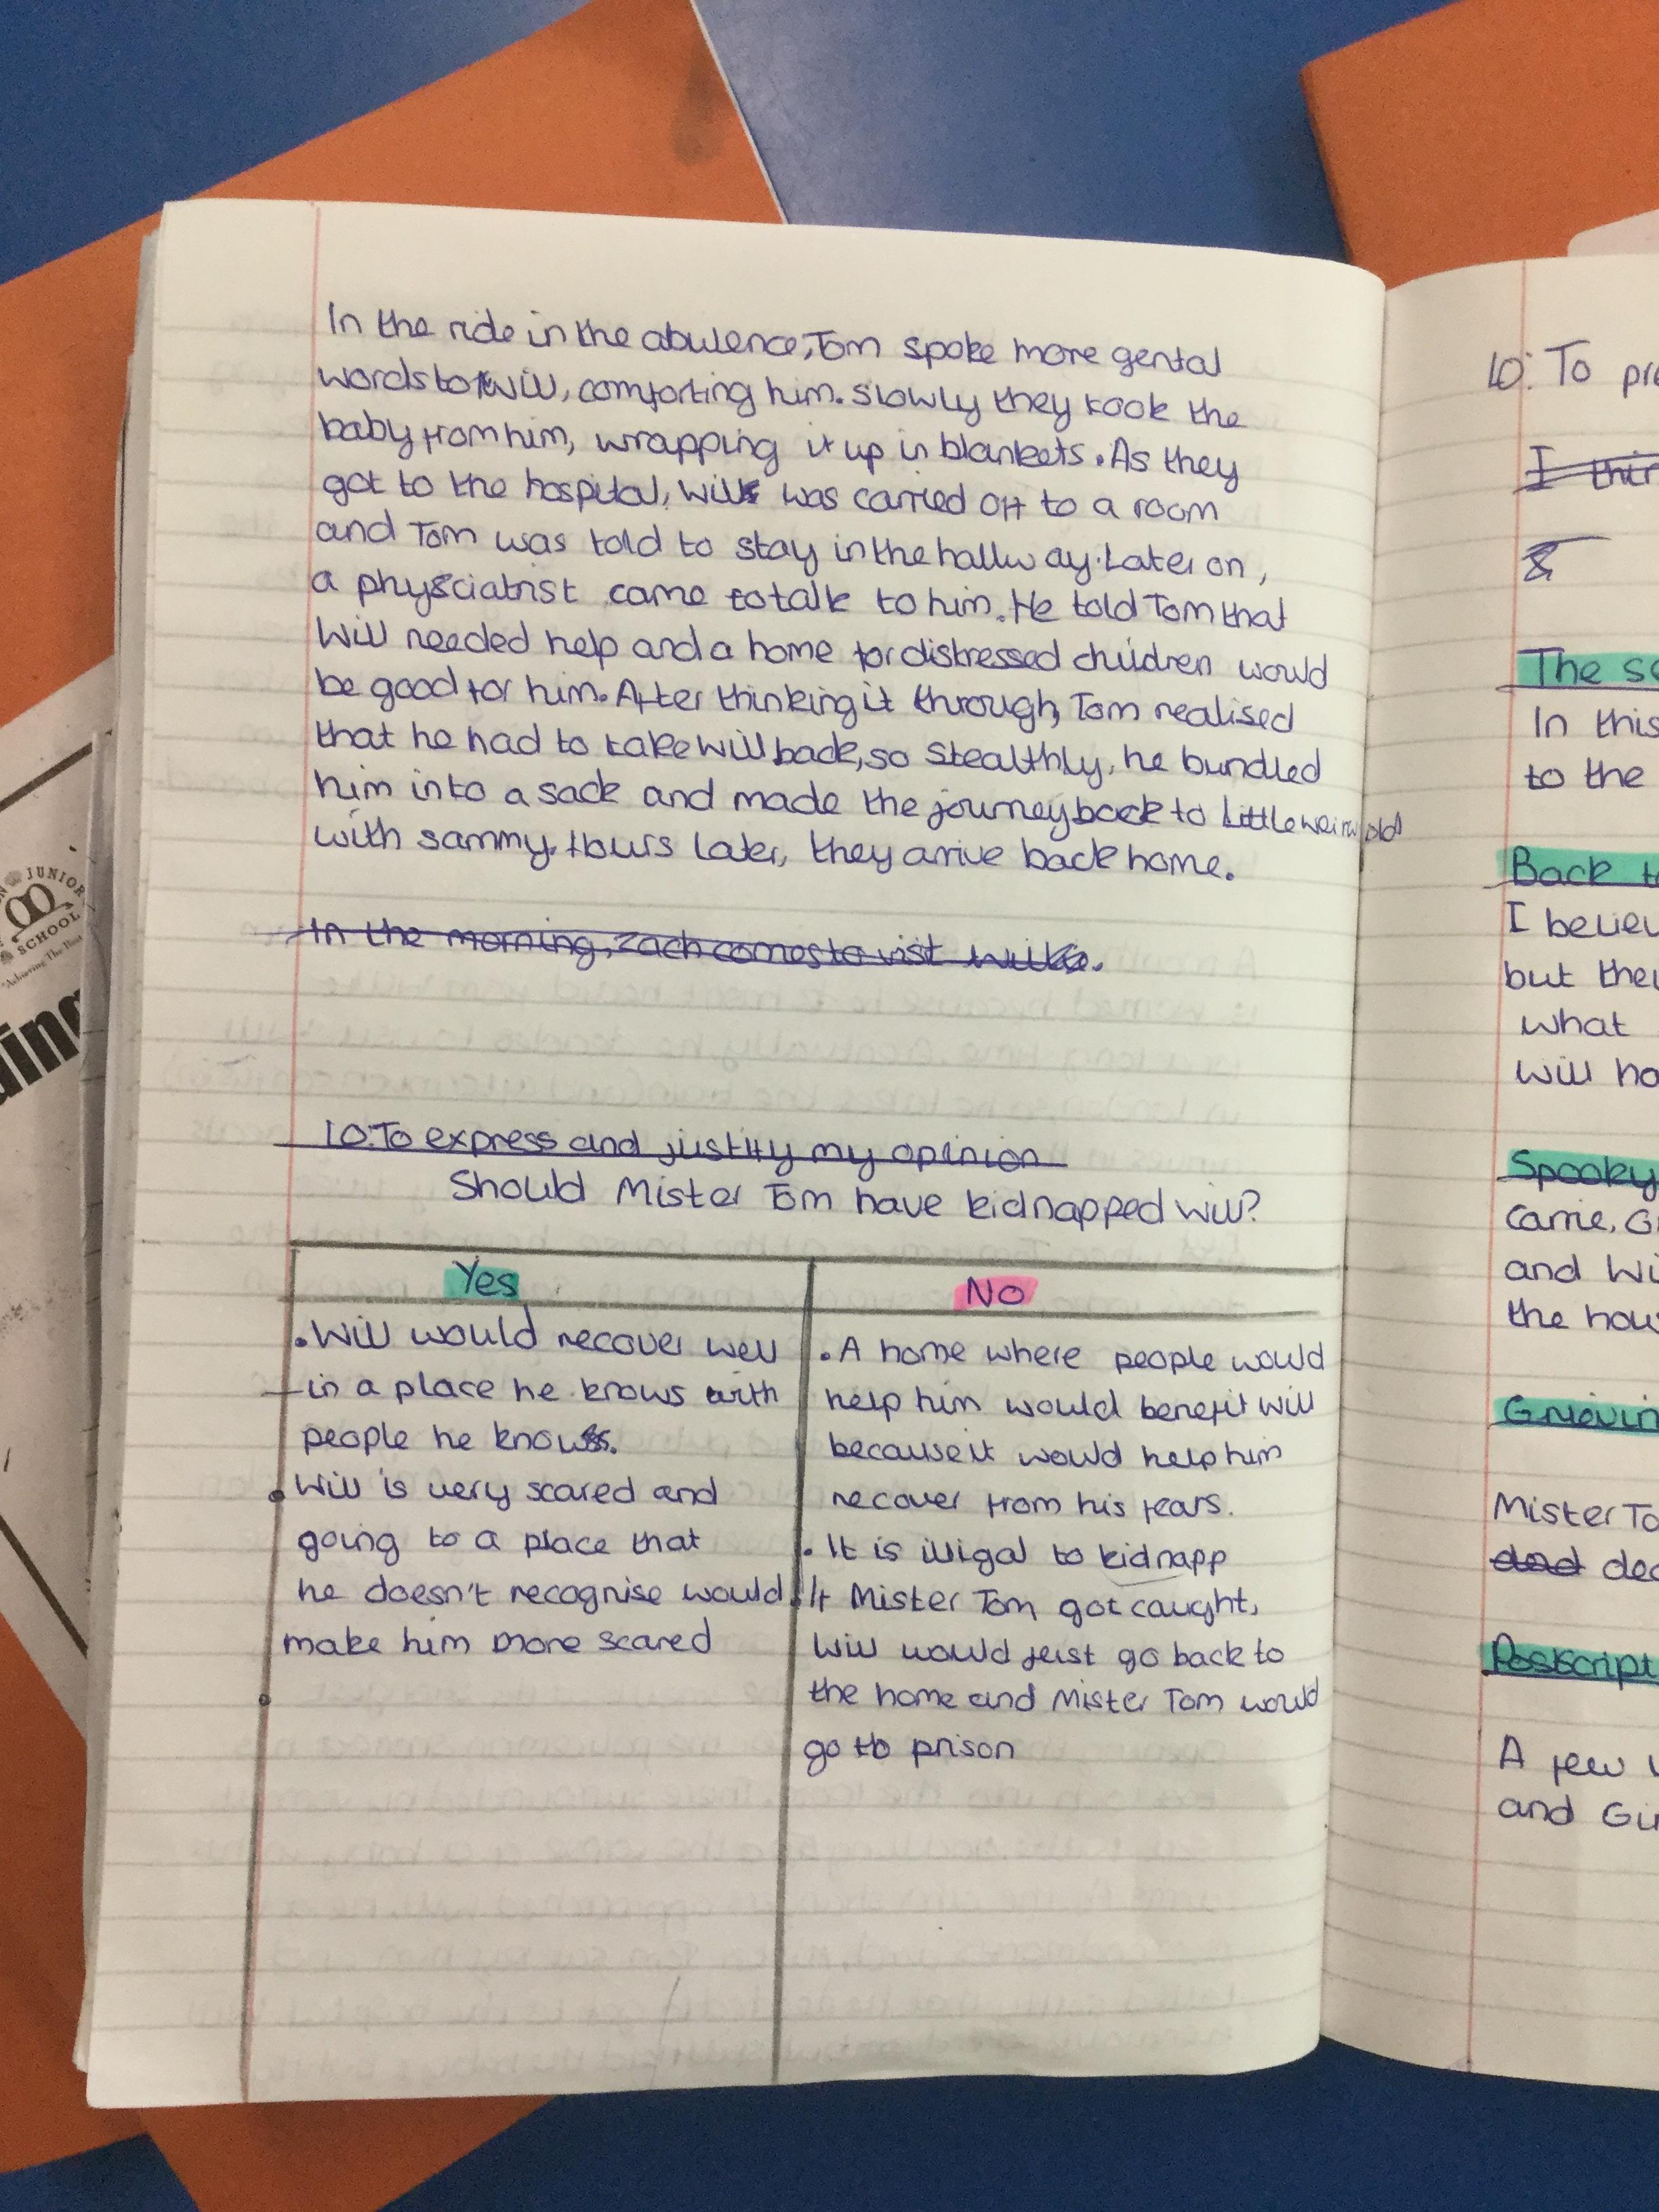 In the ride in the abulence, Tom spoke more gental
words to Will, comforting him. Slowly they took the
baby from him, wrapping it up in blankets. As they
got to the hospital, Will was carried off to a room
and Tom was told to stay in the hallway. Later on,
a physciatrist came to talk to him. He told Tom that
Will needed help and a home for distressed children would
be good for him. After thinking it through, Tom realised
that he had to take Will back, so stealthly, he bundled
him into a sack and made the journey back to Little weirwold
with sammy. Hours later, they arrive back home.
In the morning, Zach comes to vist
LO: To express and justify my opinion
Should Mister Tom have kidnapped Will?
Yes
• Will would recover well
in a place he knows with
people he knows.
• Will is very scared and
going to a place that
he doesn't recognise would
make him more scared
No
• A home where people would
help him would benefit Will
because it would help him
recover from his fears.
• It is illigal to kidnapp
• If Mister Tom got caught,
Will would just go back to
the home and Mister Tom would
go to prison
LO: To pre
I thin
The sc
In this
to the
Back to
I believ
but they
what
will ha
Spooky
Carrie, Gi
and Wi
the hou
Grievin
Mister To
dad dec
Postscript
A few w
and Gi
JUNIOR
SCHOOL
"Achieving The Best
ding